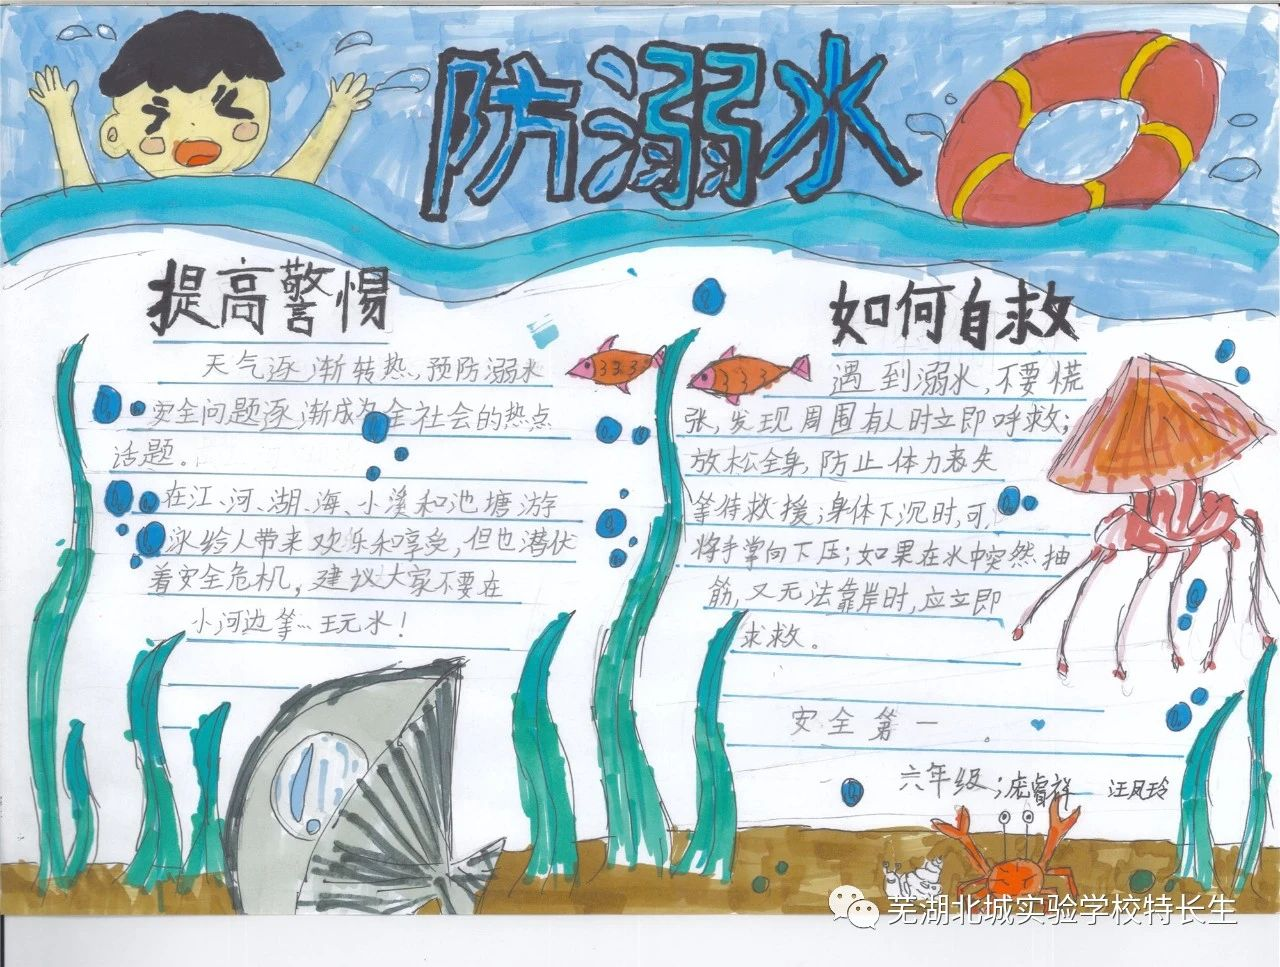 防溺水
提高警惕
天气逐渐转热,预防溺水
安全问题逐渐成为全社会的热点
话题。
在江、河、湖、海、小溪和池塘游
泳给人带来欢乐和享受,但也潜伏
着安全危机,建议大家不要在
小河边等…玩水!
如何自救
遇到溺水,不要慌
张,发现周围有人时立即呼救;
放松全身,防止体力丧失
等待救援;身体下沉时,可,
将手掌向下压;如果在水中突然抽
筋,又无法靠岸时,应立即
求救。
安全第一。
六年级;庞睿祥 汪凤玲
芜湖北城实验学校特长生